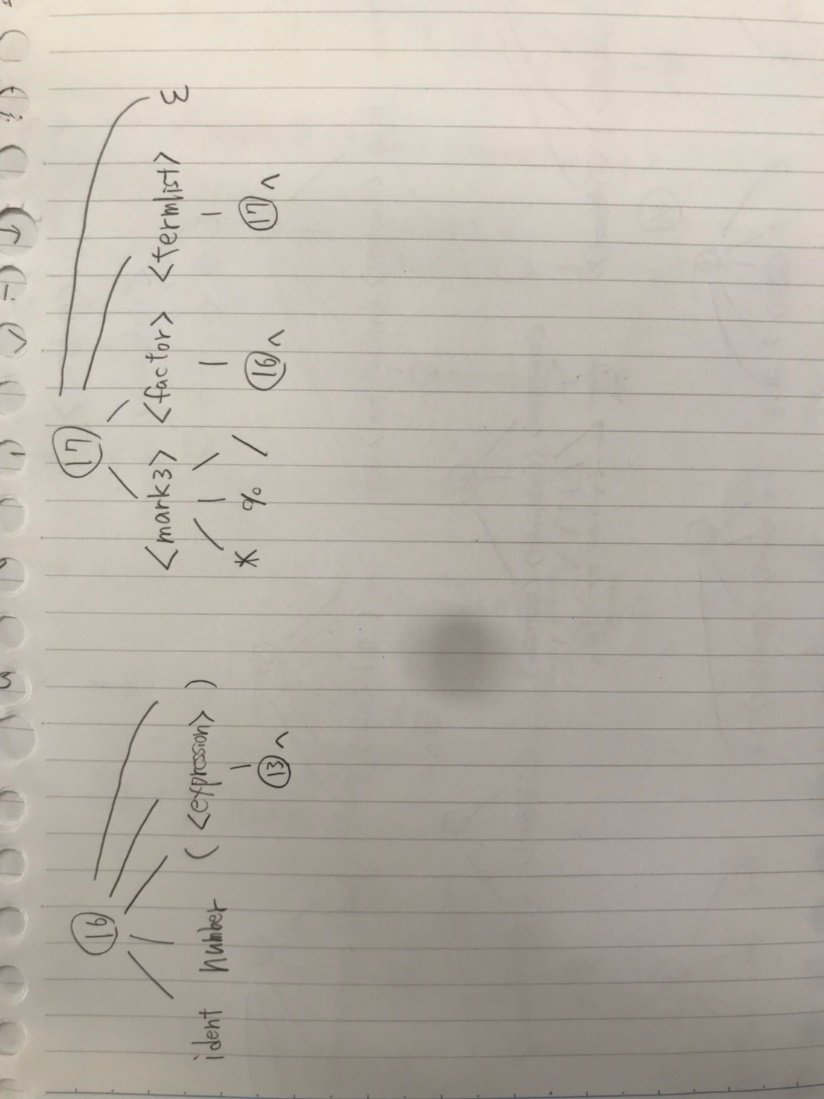 ⑯
ident number ( <expression> )
⑬^
⑰
<mark3> <factor> <termlist> ε
* % / ⑯^ ⑰^